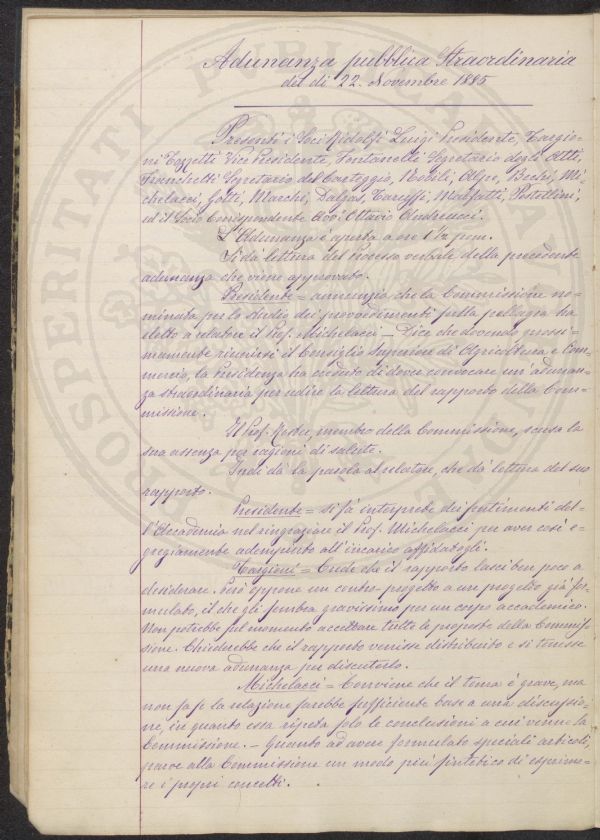 Adunanza pubblica Straordinaria
del dì 22. Novembre 1885
Presenti i Soci Ridolfi Luigi Presidente, Targio-
ni Tozzetti Vice Presidente, Fontanelli Segretario degli Atti,
Franchetti Segretario del Carteggio, Alger, Bechi, Mi-
chelacci, Gotti, Marchi, Dalgas, Caruffi, Malfatti, Pestellini,
ed il Socio Corrispondente Avv. Ottavio Andreucci.
L'Adunanza è aperta a ore 1 1/2 pom.
Si dà lettura del Processo verbale della precedente
adunanza che viene approvato.
Presidente = annunzia che la Commissione no-
minata per lo studio dei provvedimenti sulla pellagra ha
eletto a relatore il Prof. Michelacci — Dice che dovendo prossi-
mamente riunirsi il Consiglio Superiore di Agricoltura e Com-
mercio, la Presidenza ha creduto di dover convocare un'adunan-
za straordinaria per udire la lettura del rapporto della Com-
missione.
Il Prof. membro della Commissione, scusa la
sua assenza per ragioni di salute.
Indi dà la parola al relatore, che dà lettura del suo
rapporto.
Presidente = si fà interprete dei sentimenti del-
l'Accademia nel ringraziare il Prof. Michelacci per aver così e-
gregiamente adempiuto all'incarico affidatogli.
Targioni = Crede che il rapporto lasci ben poco a
desiderare. Però oppone un contro-progetto a un progetto già for-
mulato, il che gli sembra gravissimo per un corpo accademico.
Non potrebbe sul momento accettare tutte le proposte della Commis-
sione. Chiederebbe che il rapporto venisse distribuito e si tenesse
una nuova adunanza per discuterlo.
Michelacci = Conviene che il tema è grave, ma
non sa se la relazione sarebbe sufficiente base a una discussio-
ne, in quanto essa riporta solo le conclusioni a cui venne la
Commissione. — Quanto ad avere formulato speciali articoli,
parve alla Commissione un modo più sintetico di esprime-
re i propri concetti.